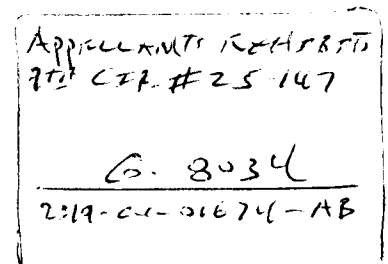 APPELLANTS EXHIBITS
9TH CIR. #25-147
G. 8034
2:19-cv-01674-AB